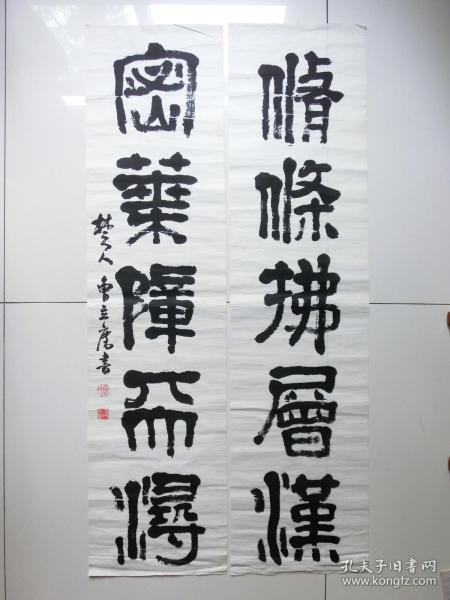 脩條拂層漢
密葉障天潯
楚人
書
孔夫子旧书网
www.kongfz.com